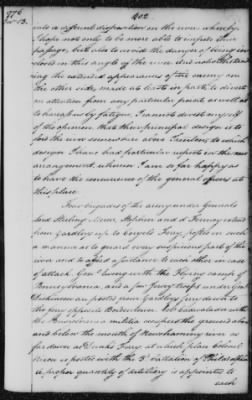 1776
Dec. 13.
402
into a different disposition on the river, whereby
I hope not only to be more able to impede their
passage, but also to avoid the danger of being in-
closed in this angle of the river. And notwithstand-
ing the extended appearances of the enemy on
the other side, made at least in part, to divert
our attention from any particular point as well as
to harass us by fatigue, I cannot divest myself
of the opinion, that their principal design is to
ford the river somewhere above Trenton, to which
design I have had particular respect in the new
arrangement, wherein I am so far happy as
to have the concurrence of the general officers at
this place.
Four brigades of the army under Generals
Lord Stirling, Mercer, Stephen and de Fermoy extend
from Yardleys up to Coryells Ferry, posted in such
a manner as to guard every suspicious part of the
river and to afford assistance to each other in case
of attack. Genl Ewing with the Flying camp of
Pennsylvania, and a few Jersey troops under Genl
Dickinson are posted from Yardleys ferry down to
the ferry opposite Bordentown. Col Cadwalader with
the Pennsylvania militia occupies the ground above
and below the mouth of Neshaminy river as
far down as Dunks Ferry, at which place Colonel
Nixon is posted with the 3d battalion of Philadelphia
A proper quantity of artillery is appointed to
each